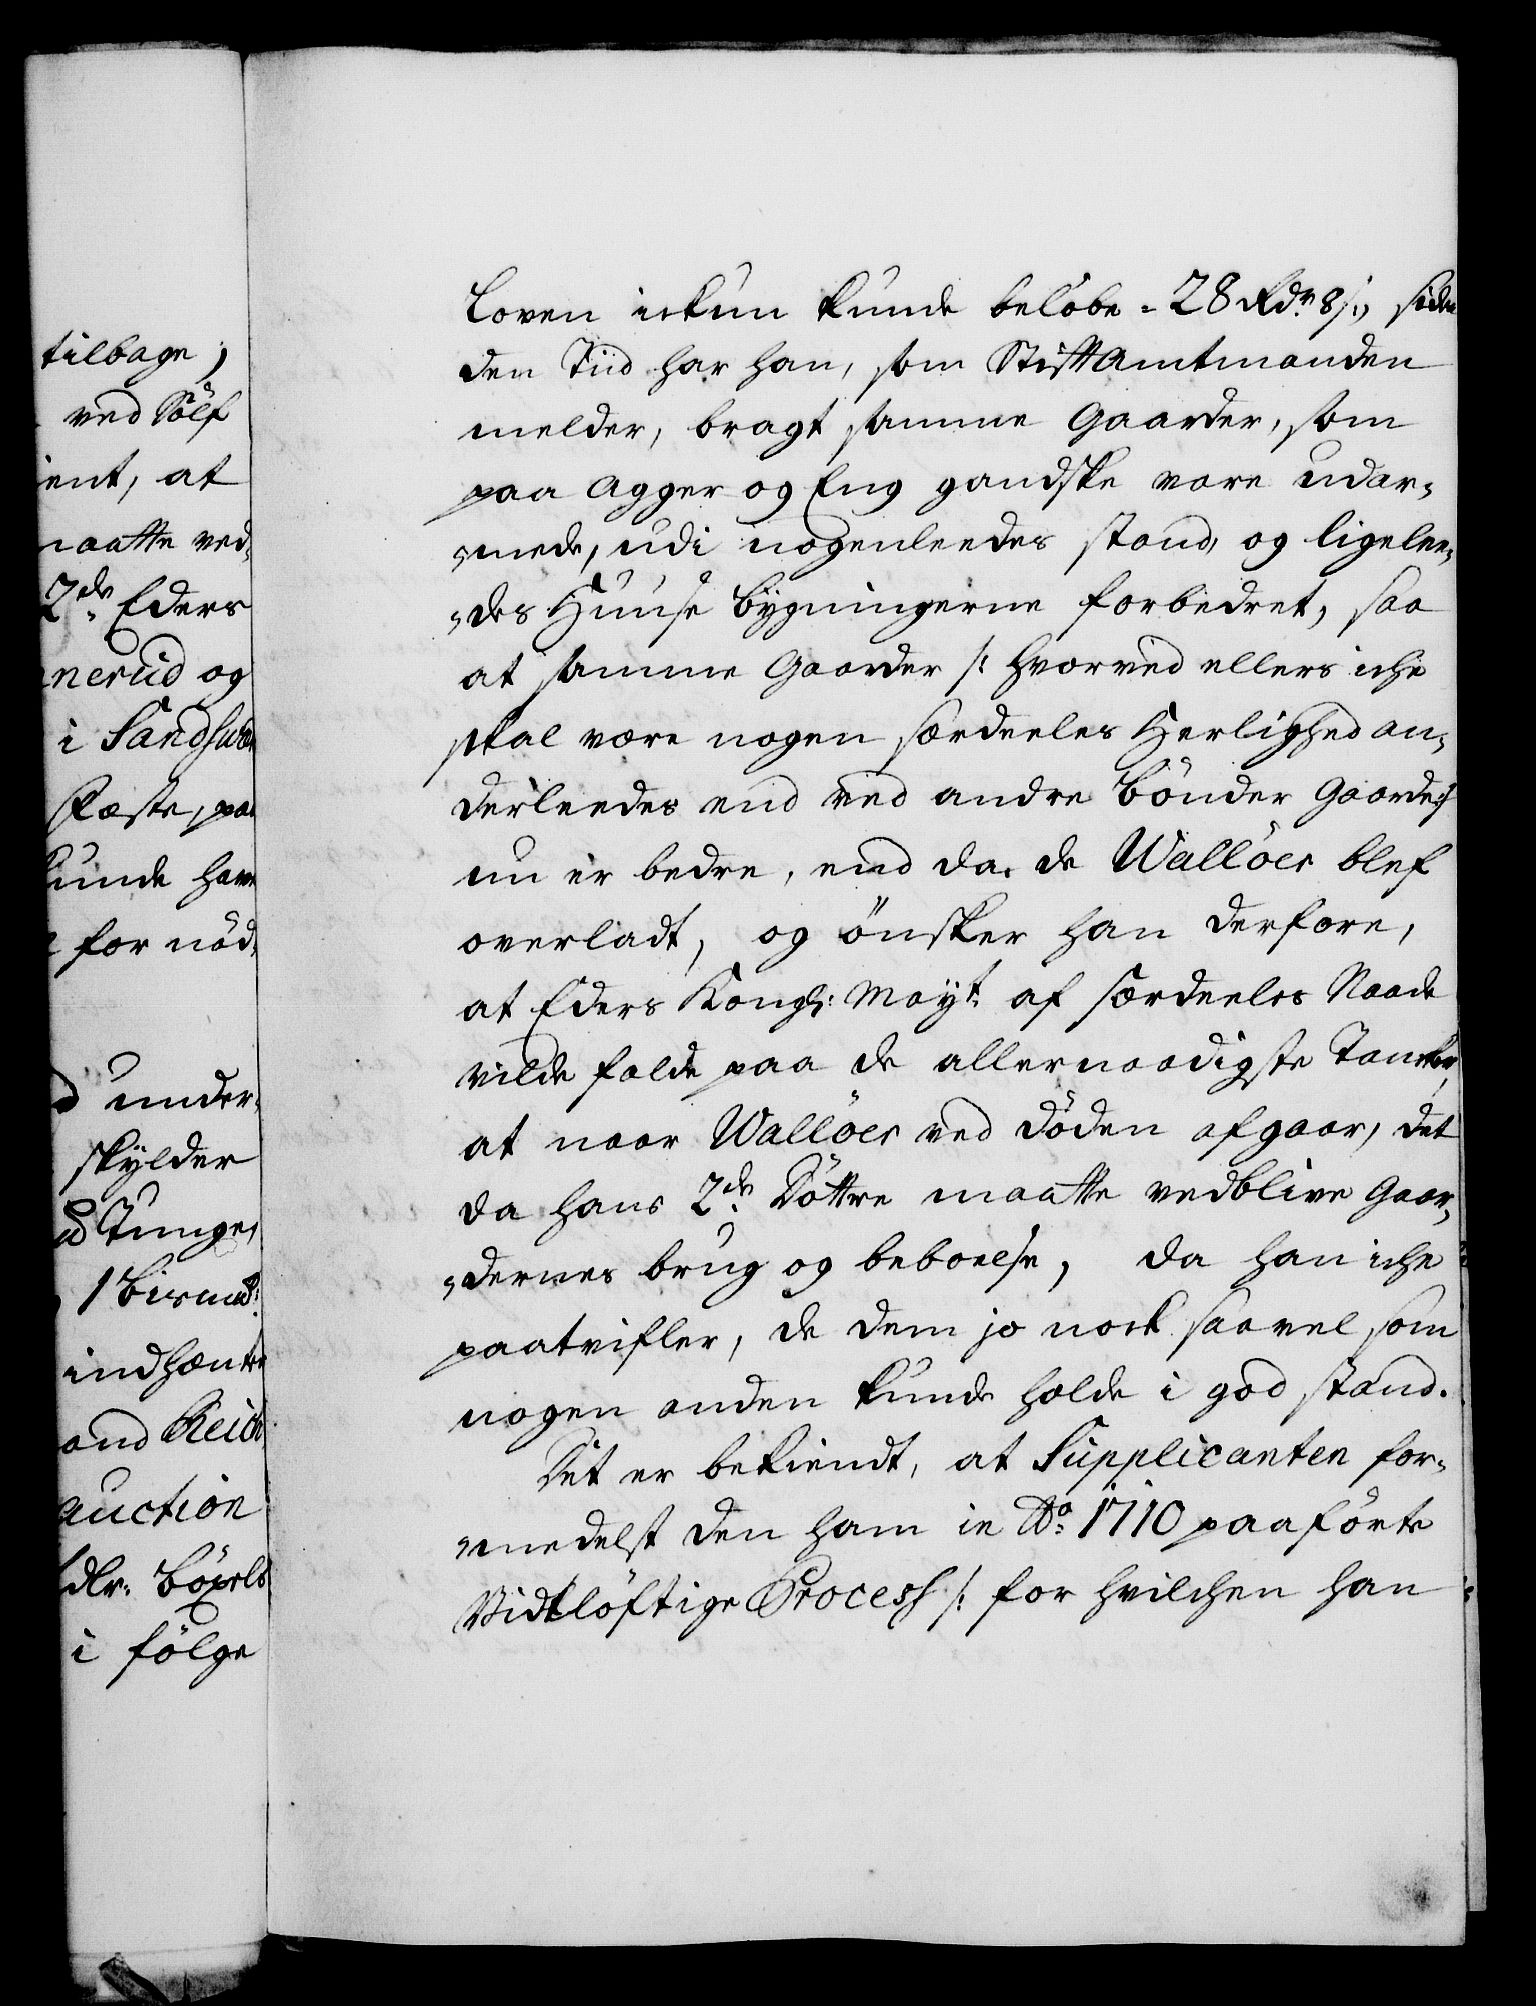 tilbage,
ved Sölf
ient, at
maatte ved,
2de Eders
nerud og
i Sandsvær
Fæste, paa
kunde have
for nöd,
d under,
skylder
Tunge,
1 Bismd:
indhænte
and Reich
auction
dlr. Böxels
i fölge
Loven ickun kunde belöbe = 28 Rdr 8 s:, siden
den Tiid har han, som Stiftamtmanden
melder, bragt samme Gaarder, som
paa Agger og Eng gandske vare udar,
„mede, udi nogenleedes stand, og ligelee,
„des Huuse bÿgningerne forbedret, saa
at samme Gaarder /: hvorved ellers iche
skal være nogen særdeeles Herlighed an,
derleedes end ved andre Bönder Gaarde :/
nu er bedre, end da de Wallöes blef
overladt, og önsker han derfore,
at Eders Kongl: Mayt: af særdeeles Naade
vilde falde paa de allernaadigste Tancker,
at naar Wallöes ved döden afgaar, det
da hans 2de Döttre maatte vedblive Gaar,
„dernes brug og beboelse, da han iche
paatvifler, de dem jo nock saavel som
nogen anden kunde holde i god stand.
Det er bekiendt, at Supplicanten for,
„medelst den ham in Ao 1710 paaförte
Vidtlöftige Process /: for hvilchen han